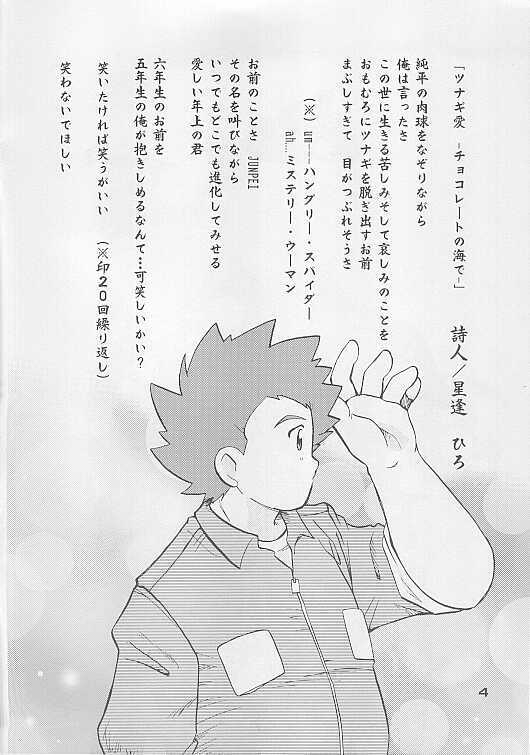 「ツナギ愛 -チョコレートの海で-」
詩人/星逢 ひろ
純平の肉球をなぞりながら
俺は言ったさ
この世に生きる苦しみそして哀しみのことを
おもむろにツナギを脱ぎ出すお前
まぶしすぎて 目がつぶれそうさ
(※) un――ハングリー・スパイダー
ah....ミステリー・ウーマン
お前のことさ JUNPEI
その名を叫びながら
いつでもどこでも進化してみせる
愛しい年上の君
六年生のお前を
五年生の俺が抱きしめるなんて…可笑しいかい?
笑いたければ笑うがいい (※印20回繰り返し)
笑わないでほしい
4